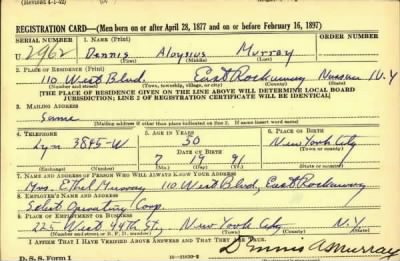 (Revised 4-1-42)
REGISTRATION CARD—(Men born on or after April 28, 1877 and on or before February 16, 1897)
SERIAL NUMBER 1. NAME (Print) ORDER NUMBER
U 2962 Dennis Aloysius Murray
(First) (Middle) (Last)
2. PLACE OF RESIDENCE (Print)
110 West Blvd. East Rockaway Nassau N.Y
(Number and street) (Town, township, village, or city) (County) (State)
[THE PLACE OF RESIDENCE GIVEN ON THE LINE ABOVE WILL DETERMINE LOCAL BOARD
JURISDICTION; LINE 2 OF REGISTRATION CERTIFICATE WILL BE IDENTICAL]
3. MAILING ADDRESS
Same
[Mailing address if other than place indicated on line 2. If same insert word same]
4. TELEPHONE 5. AGE IN YEARS 6. PLACE OF BIRTH
Lyn 3845-W 50 New York City
DATE OF BIRTH (Town or county)
7 19 91
(Exchange) (Number) (Mo.) (Day) (Yr.) (State or country)
7. NAME AND ADDRESS OF PERSON WHO WILL ALWAYS KNOW YOUR ADDRESS
Mrs. Ethel Murray 110 West Blvd, East Rockaway
8. EMPLOYER'S NAME AND ADDRESS
Select Operating Corp.
9. PLACE OF EMPLOYMENT OR BUSINESS
225 West 44th St, New York City N.Y
(Number and street or R. F. D. number) (Town) (County) (State)
I AFFIRM THAT I HAVE VERIFIED ABOVE ANSWERS AND THAT THEY ARE TRUE.
D. S. S. Form 1 Dennis A Murray